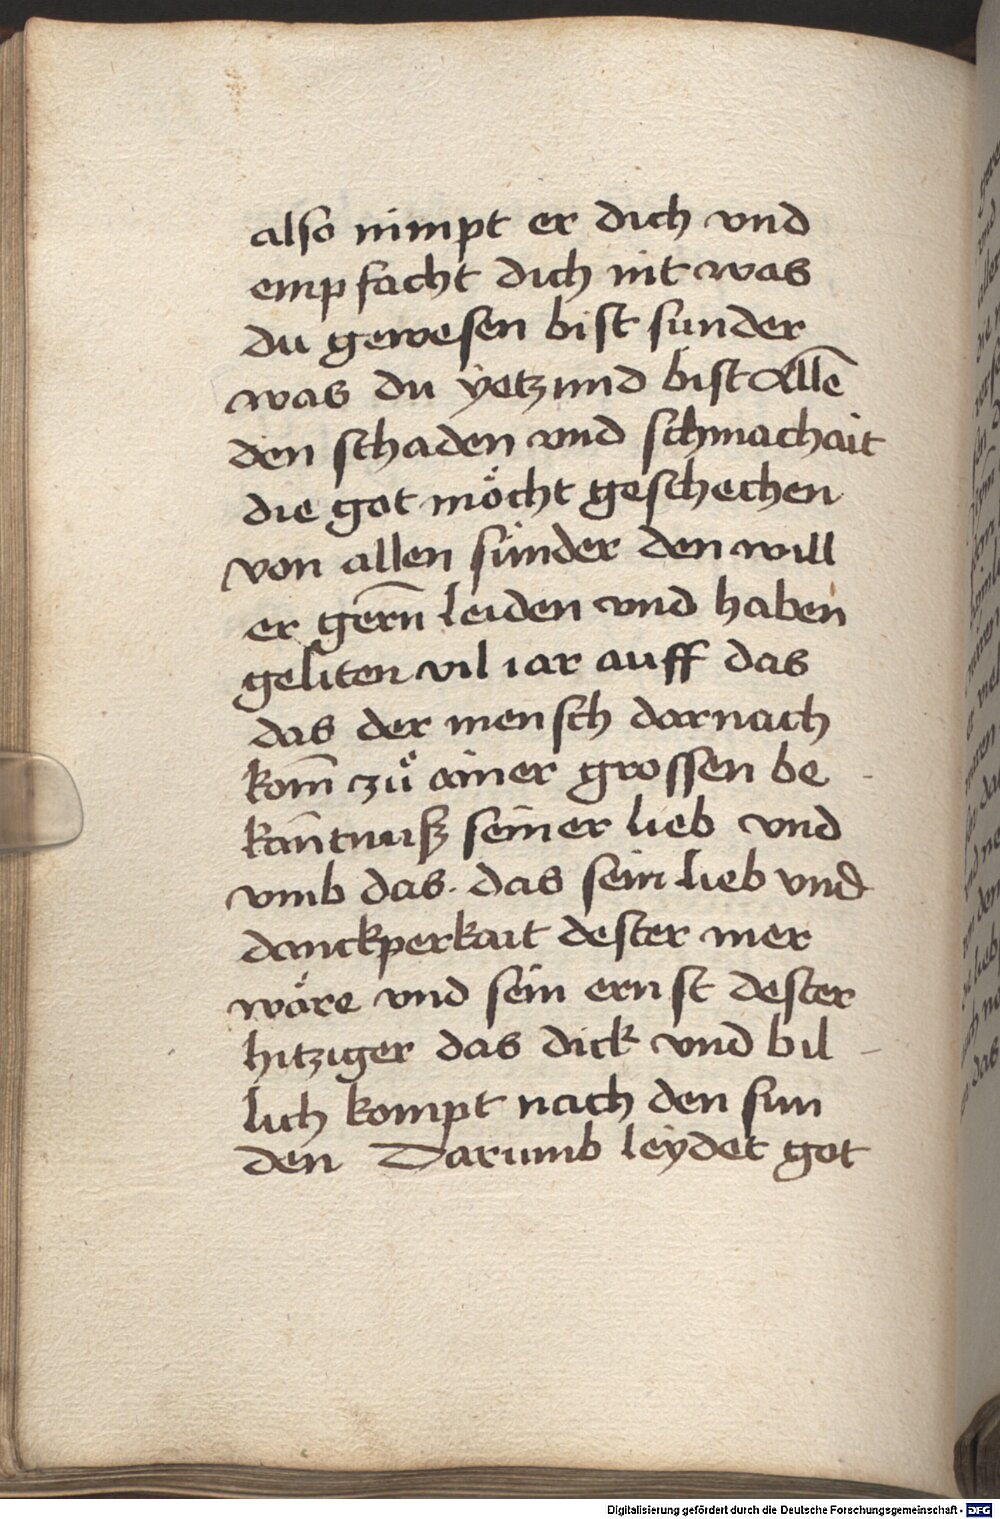 also nimpt er dich vnd
empfacht dich nit was
du gewesen bist sunder
was du yetzund bist Allē
den schaden vnd schmachait
die got möcht geschechen
von allen sünder den will
er gern̄ leiden vnd haben
geliten vil iar auff das
das der mensch darnach
kom̄ zů ainer grossen be
kan̄tnuß seiner lieb vnd
vmb das. das sein lieb vnd
danckperkait dester mer
wäre vnd sein ernst dester
hitziger das dick vnd bil
lich kompt nach den sun
den Darumb leydet got
Digitalisierung gefördert durch die Deutsche Forschungsgemeinschaft - DFG